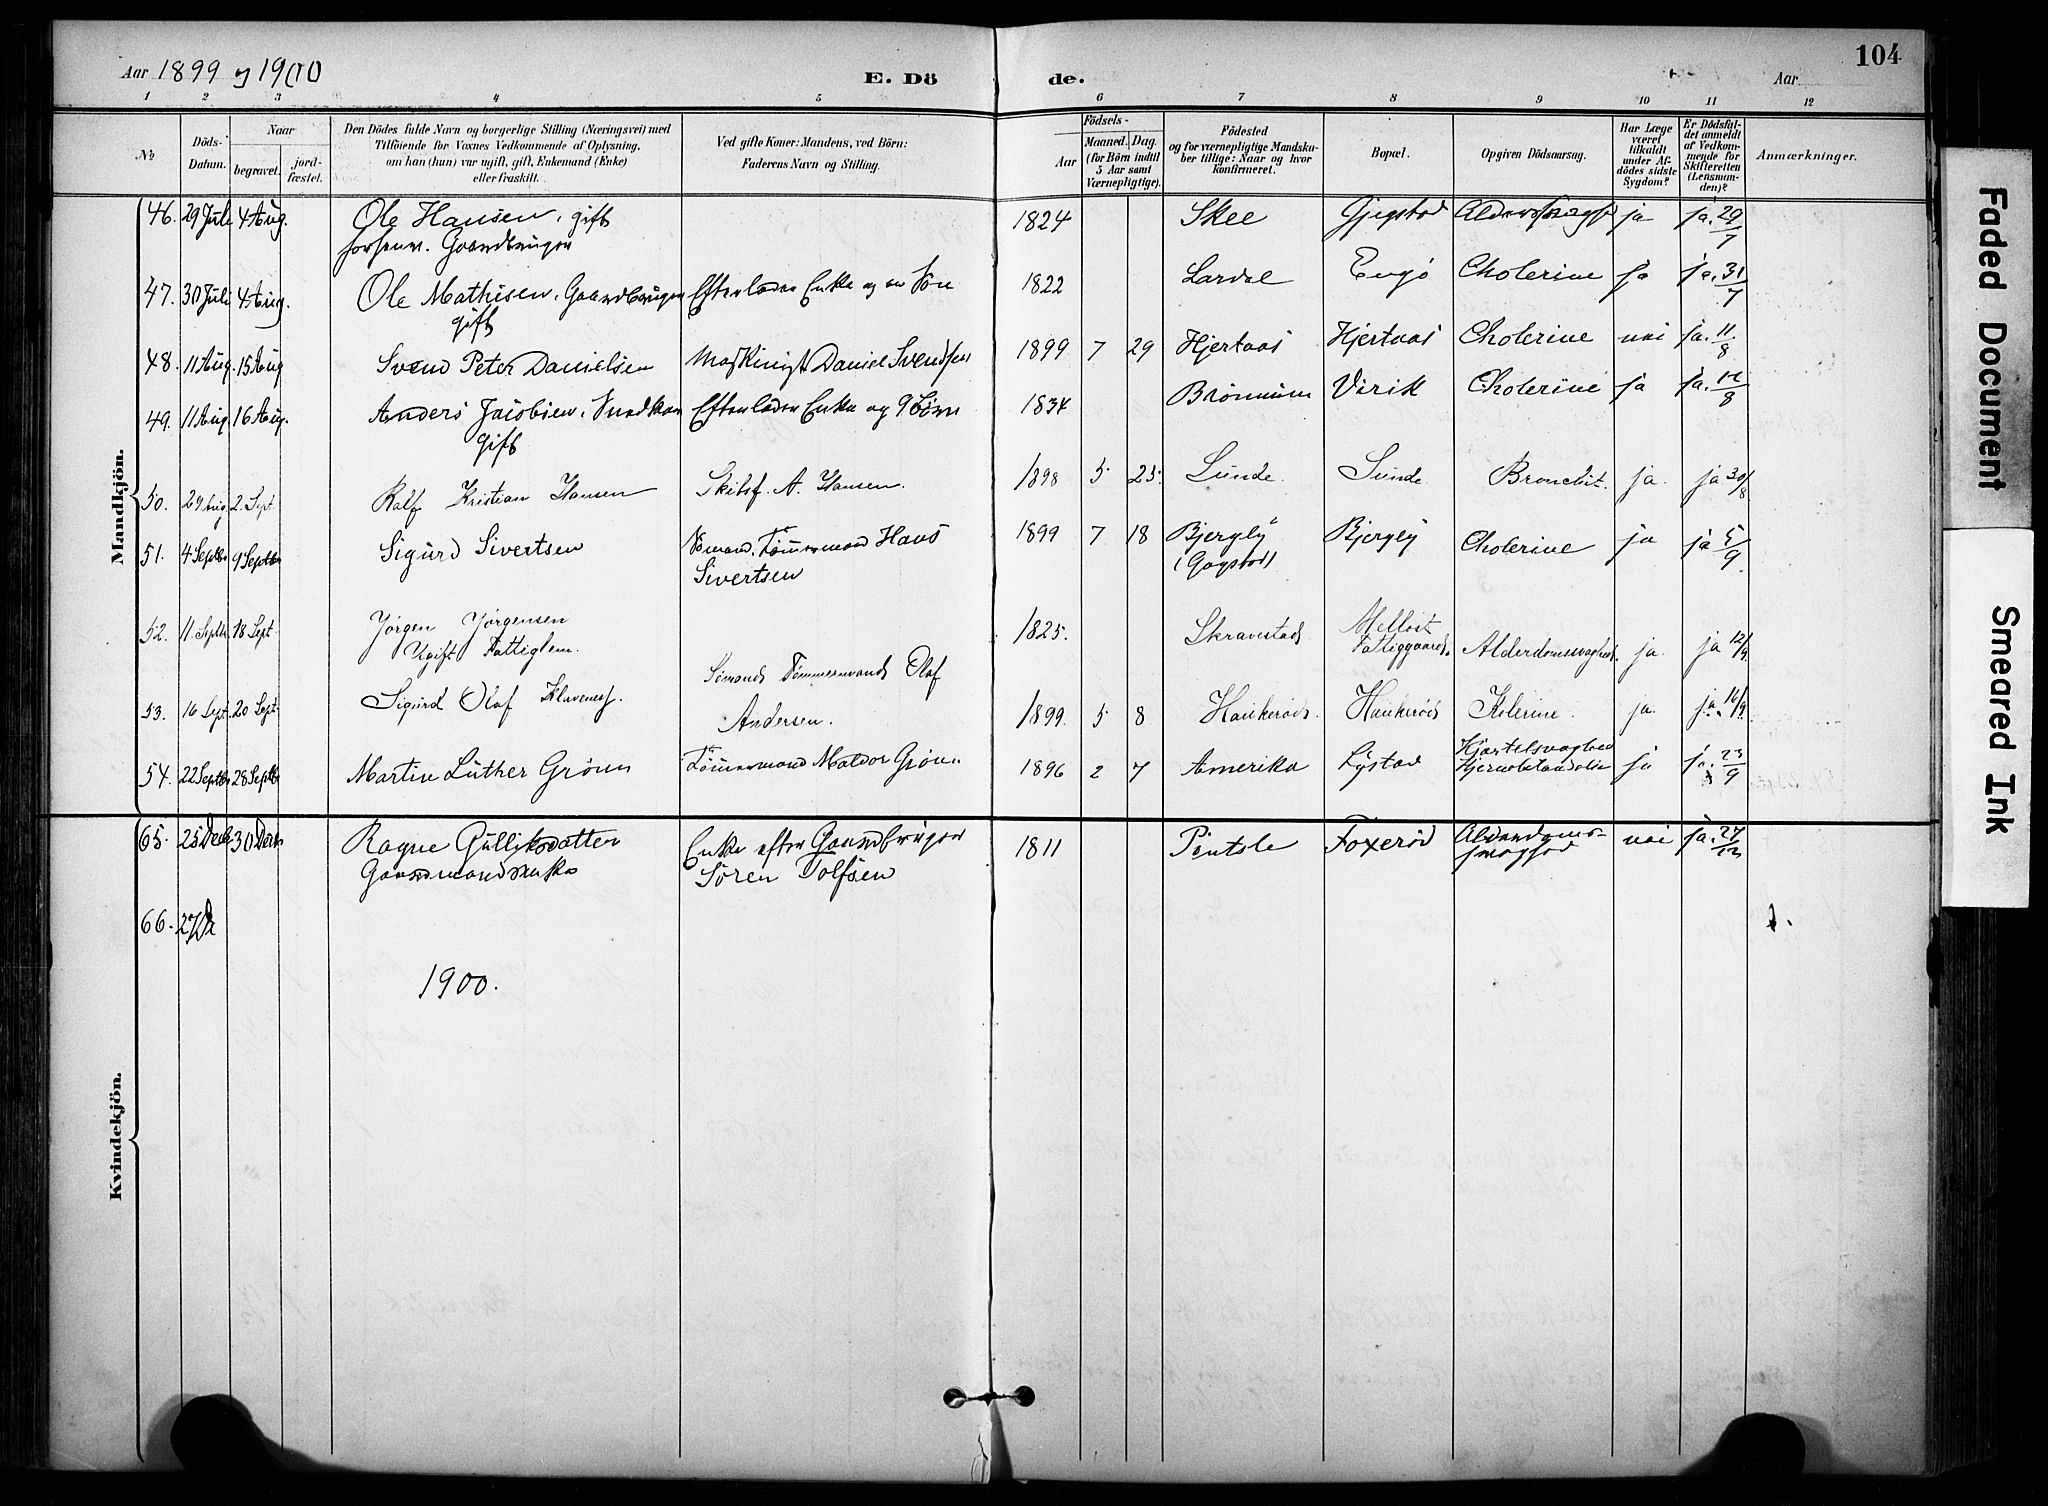 Aar 1899 og 1900 E. Dö de. Aar 104
1 2 3 4 5 6 7 8 9 10 11 12
№
Döds-Datum.
Naar
begravet.
jord-fæstet.
Den Dödes fulde Navn og borgerlige Stilling (Næringsvei) med
Tilföiende for Voxnes Vedkommende af Oplysning,
om han (hun) var ugift, gift, Enkemand (Enke)
eller fraskilt.
Ved gifte Koner: Mandens, ved Börn:
Faderens Navn og Stilling.
Födsels-
Aar
Maaned. Dag.
(for Börn indtil
5 Aar samt
Værnepligtige).
Födested
og for værnepligtige Mandsku-
ber tillige: Naar og hvor
konfirmeret.
Bopæl.
Opgiven Dödsaarsag.
Har Læge
været
tilkaldt
under Af-
dödes sidste
Sygdom?
Er Dödsfal-
det anmeldt
af Vedkom-
mende for
Skifteretten
(Lensman-
den)?
Anmærkninger.
Mandkjön.
46. 29 Juli 4 Aug. Ole Hansen, gift 1824 Skee ja ja. 29/7
forhenv. Gaardbruger
47. 30 Juli 4 Aug. Ole Mathisen, Gaardbruger Efterlader Enke og en Søn 1822 Lardal Engø Cholerine ja ja. 31/7
gift
48. 11 Aug. 15 Aug Svend Peter Danielsen Maskinist Daniel Svendsen 1899 7 29 Hjertaas Hjertaas Cholerine nei ja. 11/8
49. 11 Aug. 16 Aug. Anders Jacobsen, Efterlader Enke og 9 Børn 1834 Virik Cholerine ja ja.
gift
50. 29 Aug. 2. Sept Ralf Kristian Hansen Skibsf. A. Hansen. 1898 5 25. Lunde. Lunde Bronchit. ja. ja 30/8
51. 4 Septbr 9 Septbr Sigurd Sivertsen Sømand, Tømmermand Hans 1899 7 18 Bjergly Bjergly Cholerine ja ja 5/9
Sivertsen (Gogstad)
52. 11 Septbr. 18 Sept Jørgen Jørgensen 1825. Skravestad Mellost
Ugift Fattiglem. Fattiggaard. Alderdomssvaghed. ja. ja 12/9.
53. 16 Sept. 20 Sept. Sigurd Olaf Klavenes. Sømands Tømmermands Olaf
Andersen. 1899. 5 8 Haukerød. Haukerød Kolerine. ja. ja. 16/9.
54. 22 Septbr 28 Septbr Martin Luther Grønn Tømmermand Grønn 1896 2 7 Amerika Lystad Hjertesvaghed ja ja. 23/9
Kvindekjön.
65. 25 Decbr 30 Decbr Ragne Gulliksdatter Enke efter Gaardbruger 1811 Pentsle Foxerød Alderdoms- nei ja. 27/12
Gaardmandsenke Søren Tolfsen svaghed
66. 27 De
1900.
Faded Document
Smeared Ink